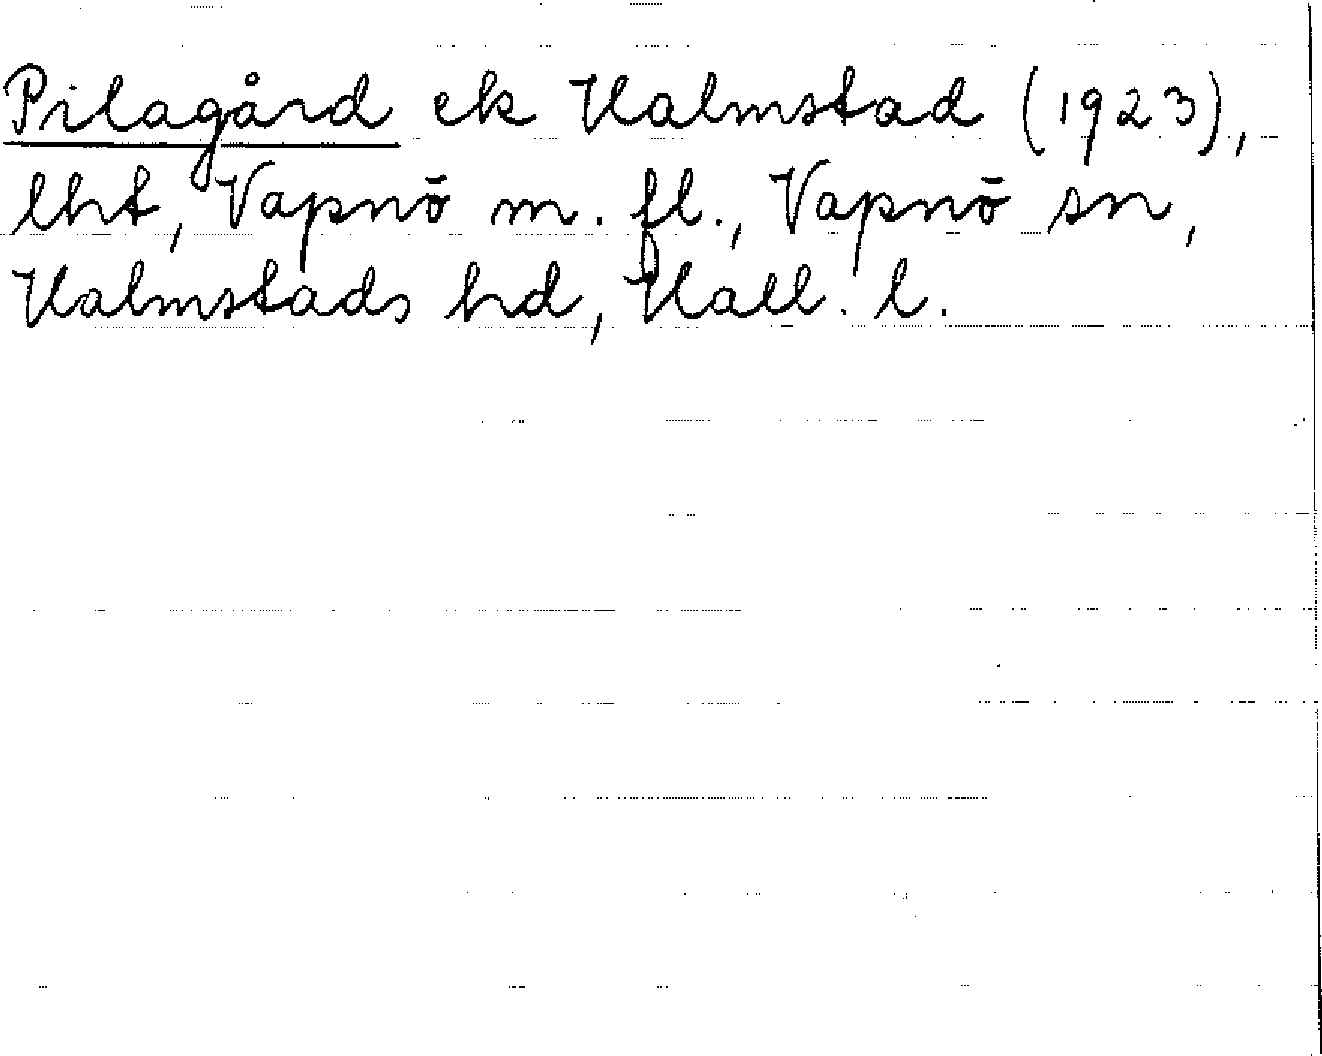 Pilagård ek Halmstad (1923),
lht, Vapnö m. fl., Vapnö sn,
Halmstads hd, Hall. l.